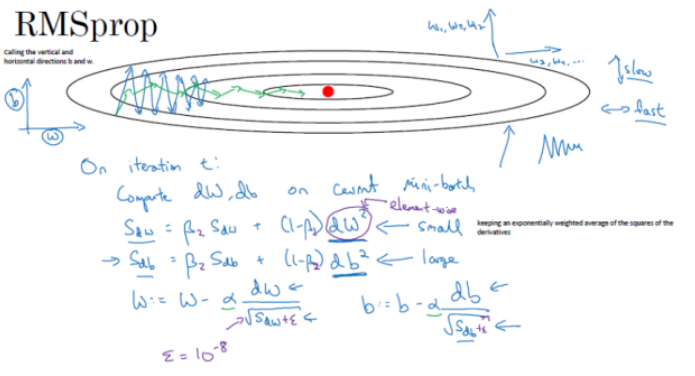 RMSprop
Calling the vertical and
horizontal directions b and w.
b
w
w₁, w₂, w₂
w₃, w₄, ...
↕ slow
↔ fast
On iteration t:
Compute dW, db on current mini-batch
element-wise
S_dw = β₂ S_dw + (1-β₂) dW² ← small
keeping an exponentially weighted average of the squares of the
derivatives
→ S_db = β₂ S_db + (1-β₂) db² ← large
W := W - α dW / √(S_dw + ε) ←
b := b - α db / √(S_db + ε) ←
ε = 10⁻⁸